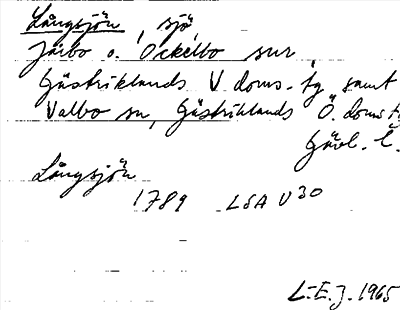 Långsjön, sjö,
Järbo o. Ockelbo snr,
Gästriklands V. doms. tg samt
Valbo sn, Gästriklands Ö. doms. tg
Gävl. l.
Långsjön
1789 LSA V 30
L-E. J. 1965